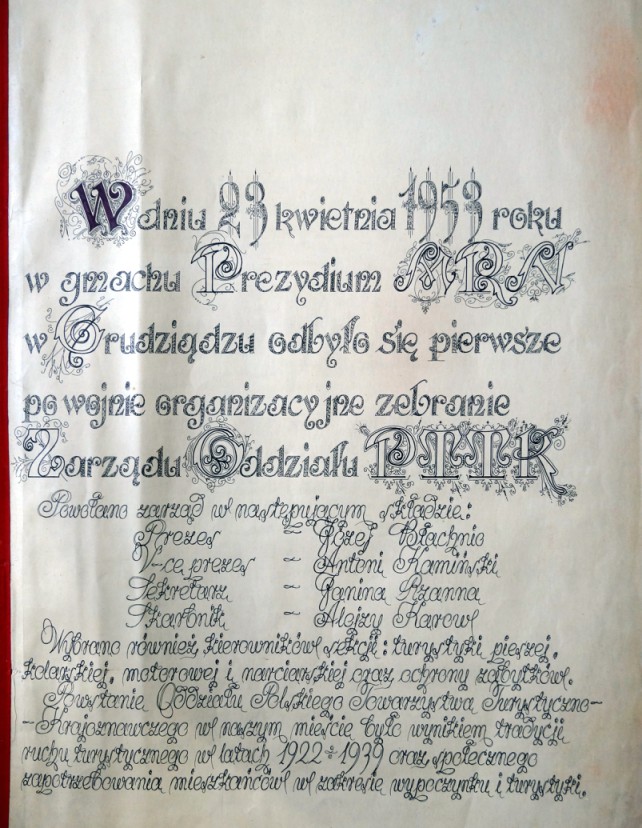 W dniu 23 kwietnia 1953 roku
w gmachu Prezydium MRN
w Grudziądzu odbyło się pierwsze
po wojnie organizacyjne zebranie
Zarządu Oddziału PTTK
Powołano zarząd w następującym składzie:
Prezes – Józef Błachnio
V-ce prezes – Antoni Kamiński
Sekretarz – Janina Rzanna
Skarbnik – Alojzy Karow
Wybrano również kierowników sekcji: turystyki pieszej,
kolarskiej, motorowej i narciarskiej oraz ochrony zabytków.
Powstanie Oddziału Polskiego Towarzystwa Turystyczno-
-Krajoznawczego w naszym mieście było wynikiem tradycji
ruchu turystycznego w latach 1922÷1939 oraz społecznego
zapotrzebowania mieszkańców w zakresie wypoczynku i turystyki.